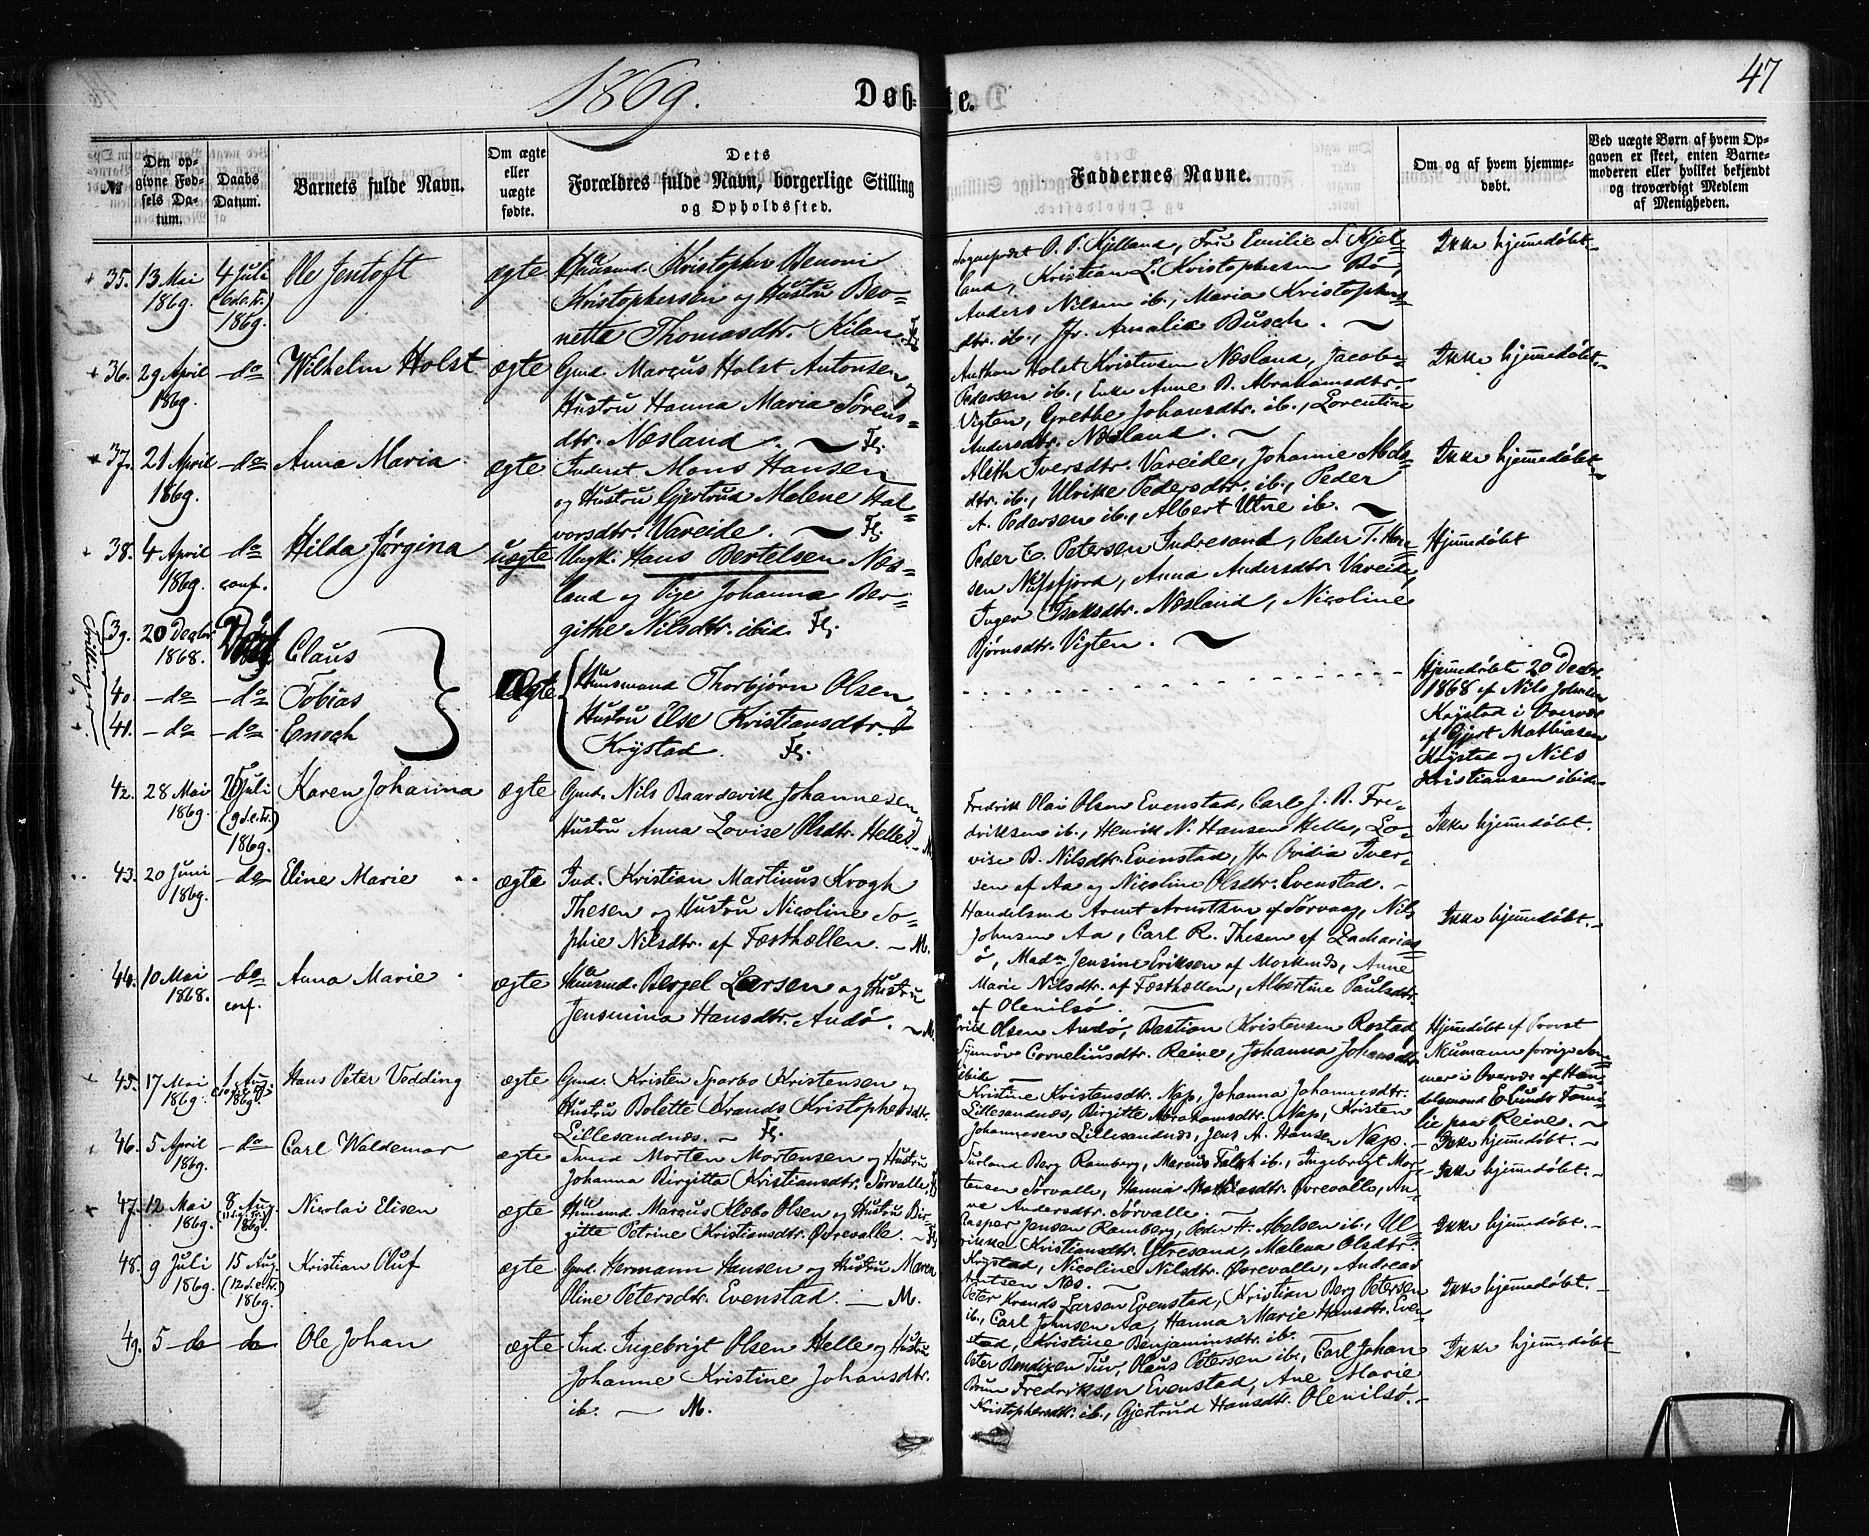 1869.
Døbte.
47
№
Den opgivne Fødsels Datum.
Daabs Datum.
Barnets fulde Navn.
Om ægte eller uægte fødte.
Dets Forældres fulde Navn, borgerlige Stilling og Opholdssted.
Faddernes Navne.
Om og af hvem hjemmedøbt.
Ved uægte Børn af hvem Opgaven er skeet, enten Barnemoderen eller hvilket bekjendt og troværdigt Medlem af Menigheden.
35. 13 Mai 1869. 4 Juli 1869. Ole Jentoft ægte
Huusmd. Kristopher Benoni
Kristophersen og Hustru Ber-
netta Thomasdtr. Kilan. Fl.
Sognepræst O. P. Kjelland, Fru Emilie S. Kjel-
land, Kristian L. Kristophersen Bø,
Anders Nilsen ib., Maria Kristophers-
dtr. ib., Jfr. Amalia Busch.
Ikke hjemmedøbt.
36. 29 April 1869. do Wilhelm Holst ægte
Gmd. Marcus Holst Antonsen og
Hustru Hanna Maria Sørens-
dtr. Næsland. Fl.
Anthon Holst Kristensen Næsland, Jacob
Pedersen ib., Enke Anne B. Abrahamsdtr.
Vigten, Grethe Johansdtr. ib., Lorentine
Andersdtr. Næsland.
Ikke hjemmedøbt.
37. 21 April 1869. do Anna Maria ægte
Inderst Mons Hansen
og Hustru Gjertrud Malene Hal-
vorsdtr. Vareide. Fl.
Aleth Iversdtr. Vareide, Johanne Mads-
dtr. ib., Ulrikke Pedersdtr. ib., Peder
A. Pedersen ib., Albert Utne ib.
Ikke hjemmedøbt.
38. 4 April 1869. do conf. Hilda Jørgina uægte
Ungk. Hans Bertelsen Næs-
land og Pige Johanna Ber-
githe Nilsdtr. ibid. Fl.
Peder C. Petersen Indresand, Peder T. Han-
sen Nufsfjord, Anna Andersdtr Vareide,
Inger Isaksdtr. Næsland, Nicoline
Bjørnsdtr. Vigten.
Hjemmedøbt
Trillinger
39. 20 Decbr. 1868. Død Claus
40. do do Tobias
41. do do Enoch
Ægte
Huusmand Thorbjørn Olsen og
Hustru Else Kristiansdtr.
Krystad. Fl.
Hjemmedøbt 20 Decbr.
1868 af Nils Johnsen
Krystad i Overvær
af Gjert Mathiasen
Krystad og Nils
Kristiansen ibid.
42. 28 Mai 1869. 25 Juli (9 S.e.Tr.) 1869. Karen Johanna ægte
Gmd. Nils Baardevik Johannesen og
Hustru Anna Lovise Olsdtr. Helle. M.
Fredrik Olai Olsen Evenstad, Carl J. B. Fre-
driksen ib., Henrik N. Hansen Helle, Lo-
vise B. Nilsdtr. Evenstad, Jfr Ovidia Iver-
sen af Aa og Nicoline Olsdtr. Evenstad.
Ikke hjemmedøbt.
43. 20 Juni 1869. do Eline Marie ægte
Ind. Kristian Martinus Krogh
Thesen og Hustru Nicoline So-
phie Nilsdtr. af Fæsthællen. M.
Handelsmd Arent Arntsen af Sørvaag, Nils
Johnsen Aa, Carl R. Thesen af Zacharias-
ø, Madm Jensine Eriksen af Moskenæs, Anne
Marie Nilsdtr. af Fæsthællen, Albertine Paulsdtr.
af Olenilsø.
Ikke hjemmedøbt.
44. 10 Mai 1868. do conf. Anna Marie ægte
Huusmd. Bergel Larsen og Hustru
Jensmina Hansdtr. Andø. M.
Olsen Andø, Bastian Kristensen Rostad,
Synnøve Corneliusdtr. Reine, Johanna Johansdtr
ibid.
Hjemmedøbt af Provst
Neumann forrige Som-
mer i Overvær af Han-
delsmand E. Lunds Fami-
lie paa Reine.
45. 17 Mai 1869. 1 Aug. 1869. Hans Peter Vedding ægte
Gmd. Kristen Sparbo Kristensen og
Hustru Bolette Brands Kristophersdtr.
Lillesandnæs. Fl.
Kristine Kristensdtr. Nap, Johanna Johannesdtr.
Lillesandnæs, Birgitte Abrahamsdtr. Nap, Kristen
Johannesen Lillesandnæs, Jens A. Hansen Nap.
Ikke hjemmedøbt.
46. 5 April 1869. do Carl Waldemar ægte
Morten Mortensen og Hustru
Johanna Birgitta Kristiansdtr. Sørvalle. Fl.
Berg Ramberg, Marcus Falch ib., Ingebrigt Mor-
tensen Sørvalle, Hanna Mathiasdtr. Øvrevalle, An-
ne Andersdtr. Sørvalle.
Ikke hjemmedøbt.
47. 12 Mai 1869. 8 Aug. 1869. Nicolai Elisen ægte
Huusmd Marcus Klæbo Olsen og Hustru Bir-
gitte Petrine Kristiansdtr. Øvrevalle. Fl.
Casper Jensen Ramberg, Peder H. Abelsen ib., Ul-
rikke Kristiansdtr. Ytresand, Malena Olsdtr.
Krystad, Nicoline Nilsdtr. Øvrevalle, Andreas
Arntsen Næs.
Ikke hjemmedøbt.
48. 9 Juli 1869. 15 Aug. (12 S.e.Tr.) 1869. Kristian Oluf ægte
Gmd. Hermann Hansen og Hustru Maren
Oline Petersdtr. Evenstad. M.
Peter Larsen Evenstad, Kristian Berg Petersen
ib., Carl Johnsen Aa, Hanna Marie Hansdtr. Even-
stad, Kristine Benjaminsdtr. ib.
Ikke hjemmedøbt.
49. 5 do do Ole Johan ægte
Ind. Ingebrigt Olsen Helle og Hustru
Johanne Kristine Johansdtr.
ib. M.
Peter Bendixen Tuv, Olaus Petersen ib., Carl Johan
Brun Fredriksen Evenstad, Ane Marie
Kristophersdtr. ib., Gjertrud Hansdtr. Olenilsø.
Ikke hjemmedøbt